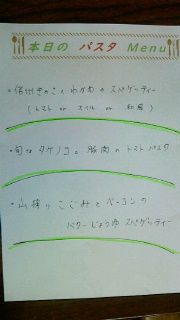 本日の パスタ Menu
・信州きのことわかめの スパゲッティー
(トマト or オイル or 和風)
・旬な タケノコと 豚肉の トマトパスタ
・山採り こごみと ベーコンの
バターじょうゆ スパゲッティー